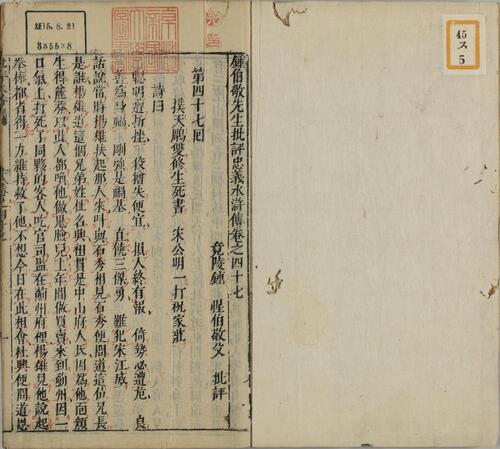 45
ス
5
鍾伯敬先生批評忠義水滸傳卷之四十七
竟陵鍾 惺伯敬父 批評
第四十七回
撲天鵰雙修生死書 宋公明一打祝家莊
詩曰
聰明遭折挫 狡獪失便宜 損人終有報 倚勢必遭危 良
善為身福 剛強是禍基 直饒三傑勇 難犯宋江威
話說當時楊雄扶起那人來叫與石秀相見石秀便問道這位兄長
是誰楊雄道這個兄弟姓杜名興祖貫是中山府人氏因為他面顏
生得麄莽以此人都喚他做鬼臉兒上年間做買賣來到薊州因一
口氣上打死了同夥的客人吃官司監在薊州府裡楊雄見他說起
拳棒都省得一力維持救了他不想今日在此相會杜興便問道恩
15.8.21